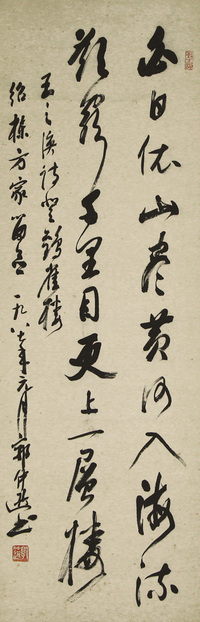 白日依山尽黄河入海流
欲穷千里目更上一层楼
王之涣诗登鹳雀楼
绍栋方家留念一九八七年元月郭仲选书